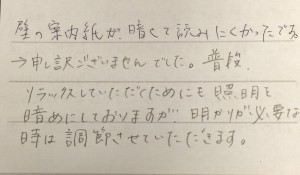 壁の案内紙が、暗くて読みにくかったです。
→申し訳ございませんでした。普段、
リラックスしていただくためにも照明を
暗めにしておりますが、明かりが必要な
時は調節させていただきます。